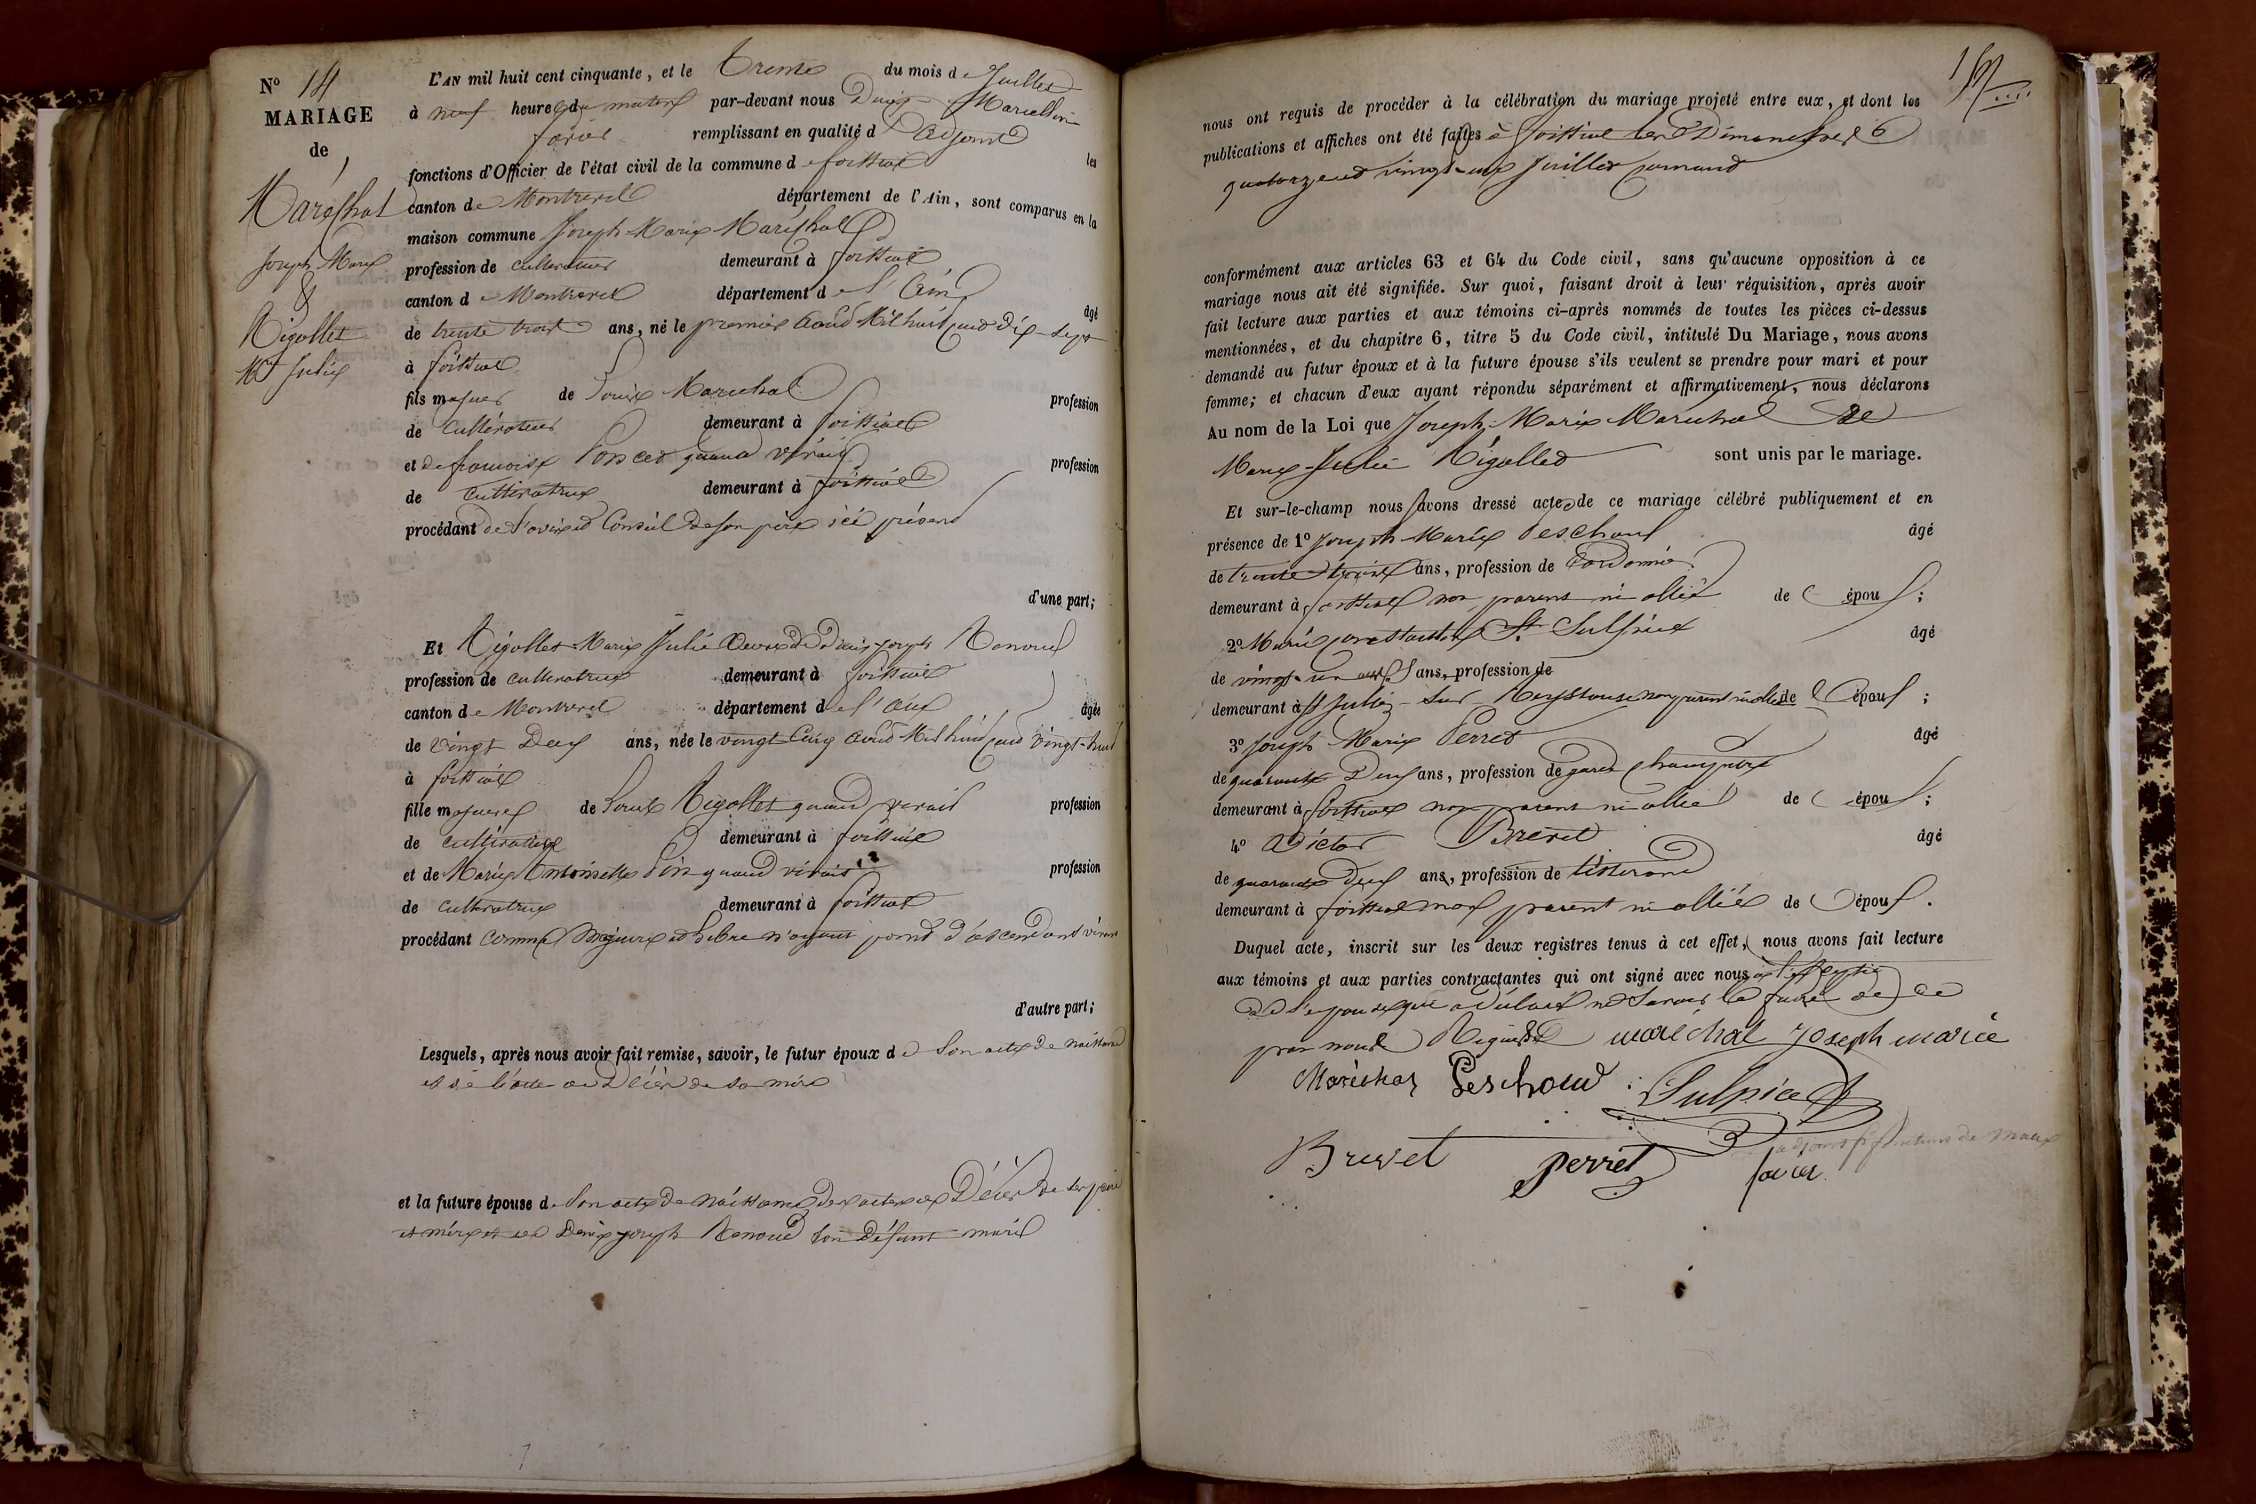 N° 14
MARIAGE
de
Maréchal
Joseph Marie
&
Rigollet
Mie Julie
L'AN mil huit cent cinquante, et le trente du mois de Juillet
à neuf heures du matin par-devant nous Denis Marcellin
favier remplissant en qualité d'adjoint les
fonctions d'Officier de l'état civil de la commune de foissiat
canton de Montrevel département de l'Ain, sont comparus en la
maison commune Joseph Marie Maréchal
profession de cultivateur demeurant à foissiat
canton de Montrevel département de l'Ain âgé
de trente trois ans, né le premier Août Mil huit cent dix-sept
à foissiat
fils majeur de Louis Marechal profession
de cultivateur demeurant à foissiat
et de francoise Poncet quand vivait profession
de cultivatrice demeurant à foissiat
procédant de l'avis et Conseil de son père ici présent
d'une part;
Et Rigollet Marie Julie veuve de Denis joseph Renoud
profession de cultivatrice demeurant à foissiat
canton de Montrevel département de l'Ain âgée
de vingt Deux ans, née le vingt Cinq Août Mil huit cent vingt-huit
à foissiat
fille majeure de Louis Rigollet quand vivait profession
de cultivateur demeurant à foissiat
et de Marie Antoinette Pin quand vivait profession
de cultivatrice demeurant à foissiat
procédant comme Majeure et Libre n'ayant point d'ascendant vivant
d'autre part;
Lesquels, après nous avoir fait remise, savoir, le futur époux de Son acte de naissance
et de l'acte de Décès de sa mère
et la future épouse de Son acte de naissance des actes de Décès de ses père
et mère et de Denis joseph Renoud son défunt mari
nous ont requis de procéder à la célébration du mariage projeté entre eux, et dont les
publications et affiches ont été faites à foissiat les Dimanches
quatorze et vingt-un Juillet courant
conformément aux articles 63 et 64 du Code civil, sans qu'aucune opposition à ce
mariage nous ait été signifiée. Sur quoi, faisant droit à leur réquisition, après avoir
fait lecture aux parties et aux témoins ci-après nommés de toutes les pièces ci-dessus
mentionnées, et du chapitre 6, titre 5 du Code civil, intitulé Du Mariage, nous avons
demandé au futur époux et à la future épouse s'ils veulent se prendre pour mari et pour
femme; et chacun d'eux ayant répondu séparément et affirmativement, nous déclarons
Au nom de la Loi que Joseph Marie Marechal et
Marie Julie Rigollet sont unis par le mariage.
Et sur-le-champ nous avons dressé acte de ce mariage célébré publiquement et en
présence de 1° Joseph Marie Peschoud âgé
de trente trois ans, profession de Cordonnier
demeurant à foissiat non parent ni allié de époux;
2° Marie Constantin St Sulpice âgé
de vingt-un ans, profession de
demeurant à St Julien sur Reyssouze non parent ni allié de époux;
3° Joseph Marie Perret âgé
de quarante Deux ans, profession de garde champetre
demeurant à foissiat non parent ni allié de époux;
4° Victor Brevet âgé
de quarante Deux ans, profession de tisserand
demeurant à foissiat non parent ni allié de époux.
Duquel acte, inscrit sur les deux registres tenus à cet effet, nous avons fait lecture
aux témoins et aux parties contractantes qui ont signé avec nous à l'exception
de l'épouse qui a déclaré ne savoir le faire de ce
par nous Requise maréchal joseph marie
Maréchal Peschoud Sulpice
Brevet perret favier